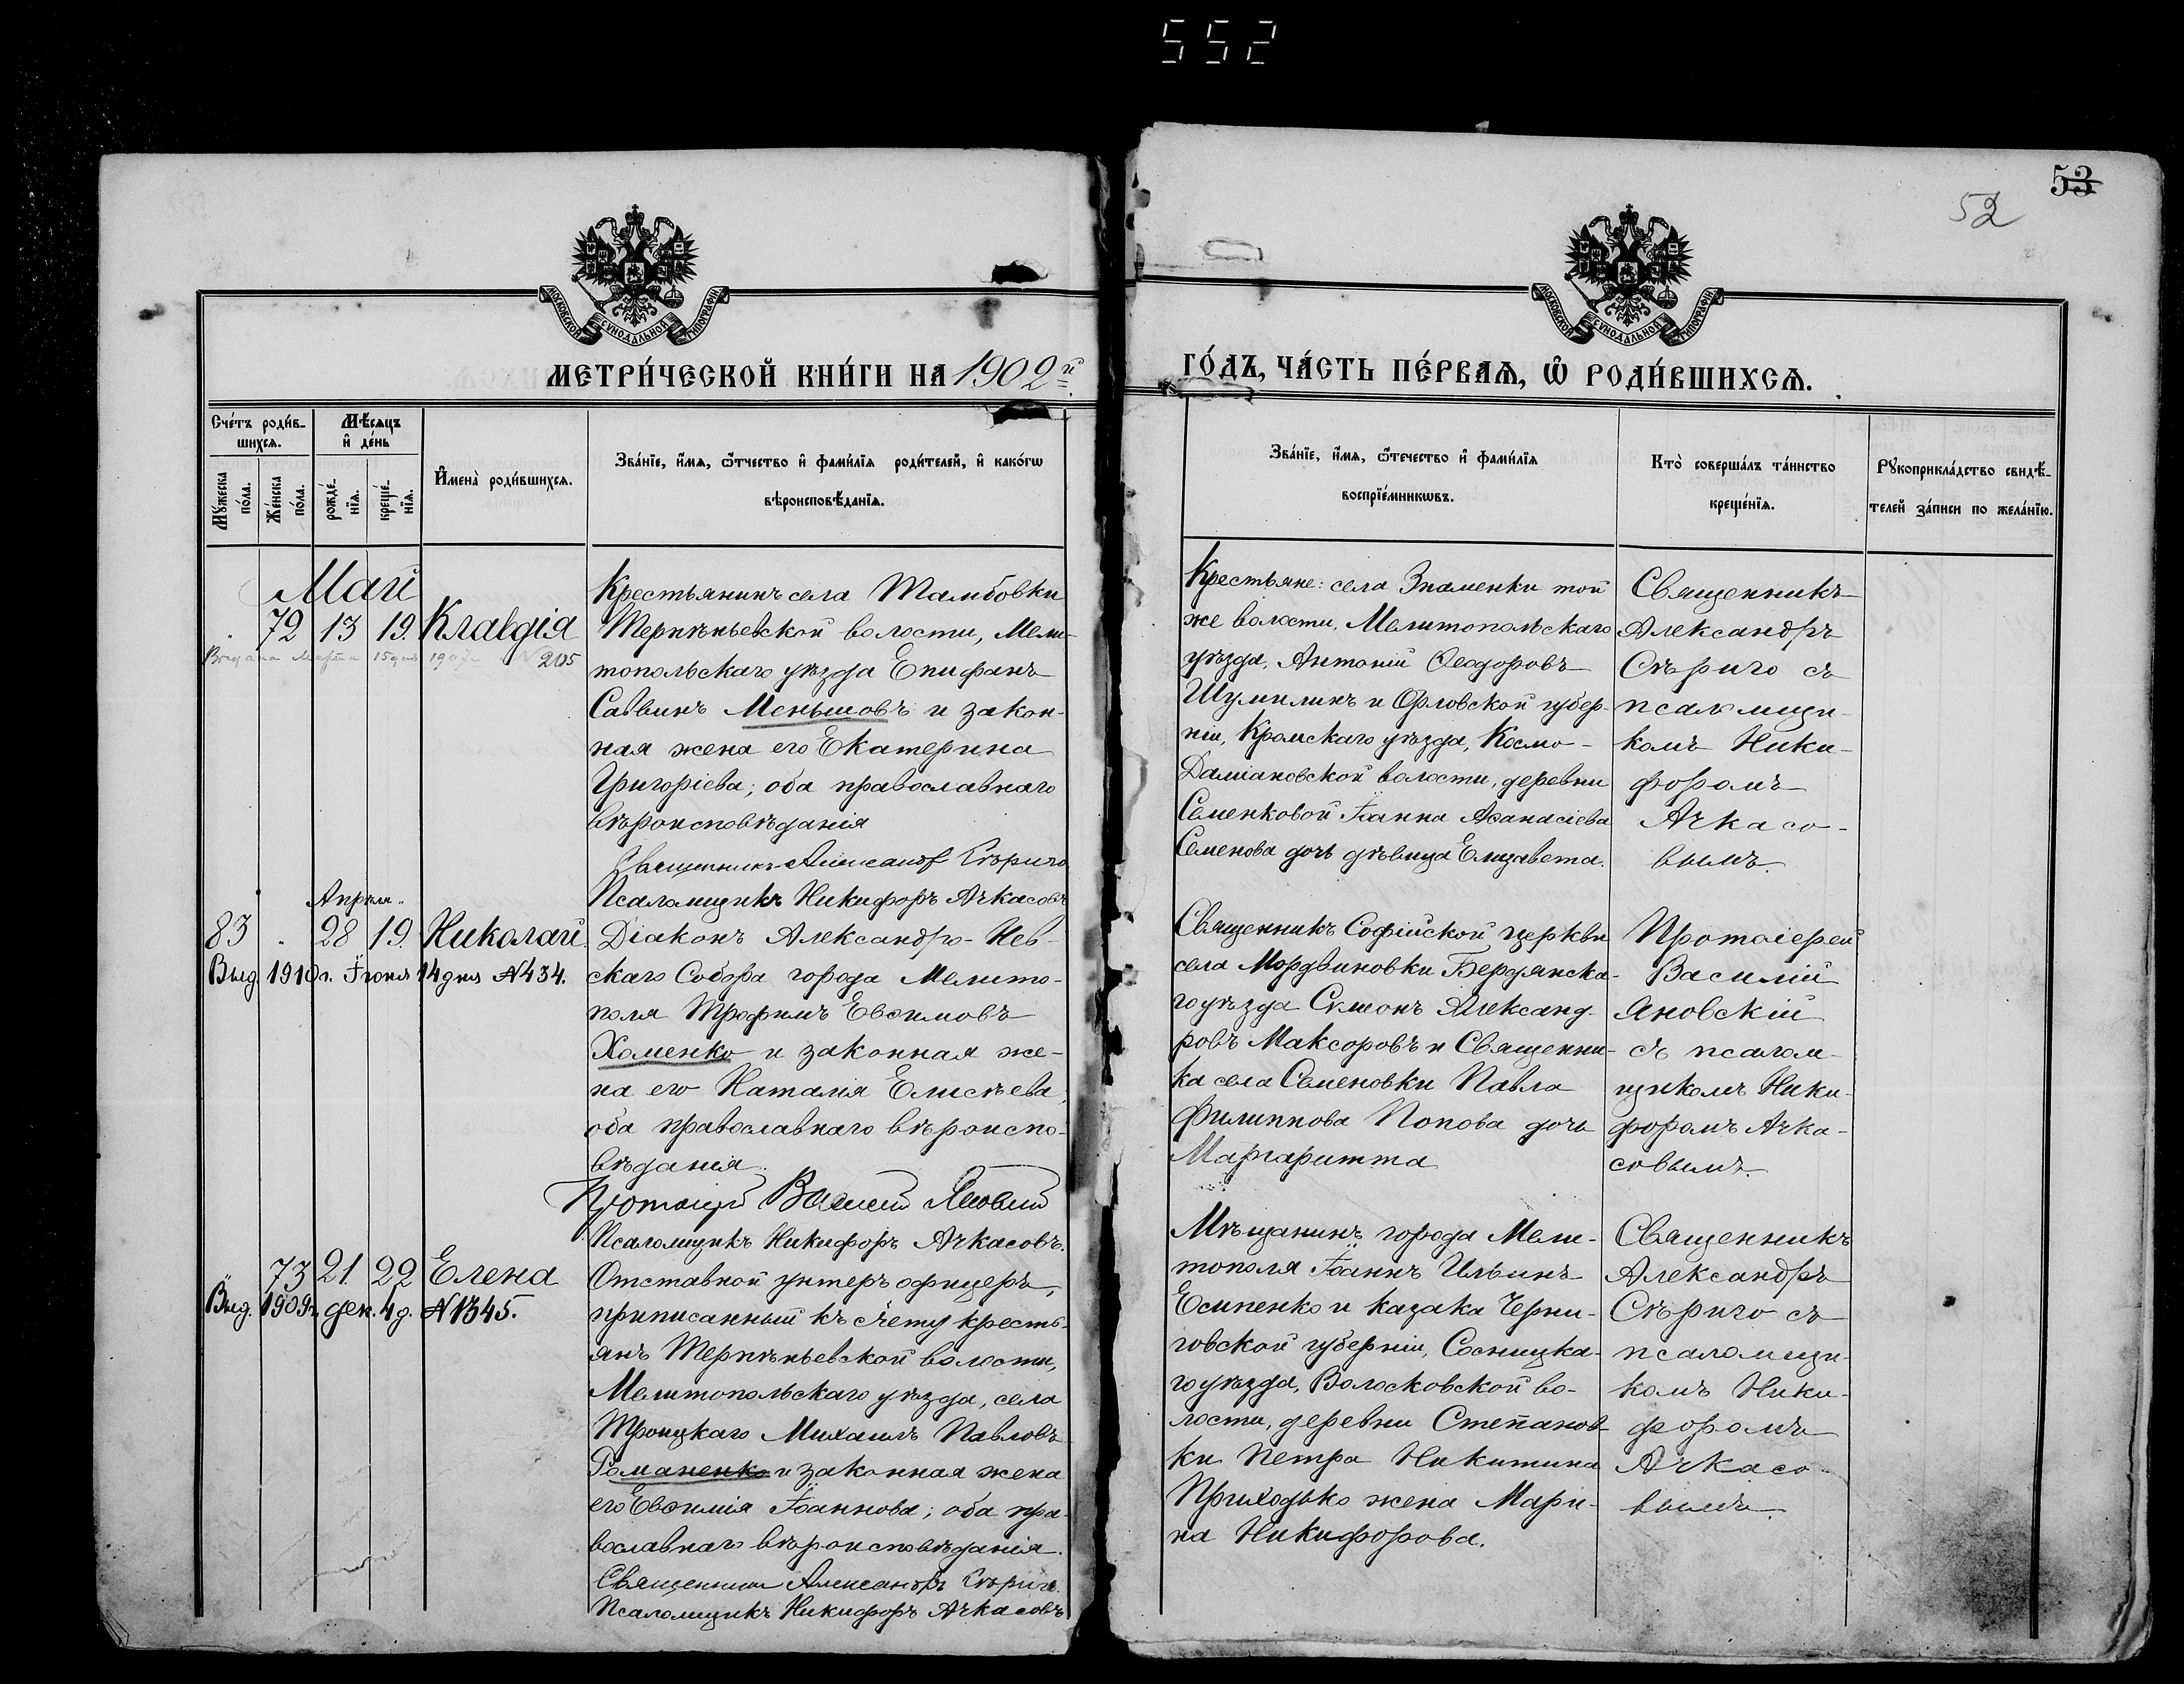 552
53
52
МОСКОВСКОЙ СѴНОДАЛЬНОЙ ТИПОГРАФІИ
МОСКОВСКОЙ СѴНОДАЛЬНОЙ ТИПОГРАФІИ
МЕТРИ́ЧЕСКОЙ КНИ́ГИ НА 1902й
ГО́ДЪ, ЧА́СТЬ ПЕ́РВАѦ, Ѡ҆ РОДИ́ВШИХСѦ.
Сче́тъ роди́в-
шихсѧ.
Мꙋ́жеска по́ла.
Же́нска по́ла.
Мѣ́сѧцъ
и҆ де́нь
рожде́-
нїѧ.
креще́-
нїѧ.
И҆мена̀ роди́вшихсѧ.
Зва́нїе, и҆́мѧ, ѻ҆́тчество и҆ фами́лїѧ роди́телей, и҆ како́гѡ
вѣроисповѣ́данїѧ.
Зва́нїе, и҆́мѧ, ѻ҆́течество и҆ фами́лїѧ
воспрїе́мникѡвъ.
Кто̀ соверша́лъ та́инство
креще́нїѧ.
Рꙋкоприкла́дство свидѣ́-
телей за́писи по жела́нїю.
Май
72 13 19. Клавдія
Выдана Марта 15 дня 1907 г. № 205
Крестьянинъ села Тамбовки
Терпѣньевской волости, Мели-
топольскаго уѣзда Епифанъ
Саввинъ Меньшовъ и закон-
ная жена его Екатерина
Григоріева; оба православнаго
вѣроисповѣданія
Священникъ Александръ Сѣриго
Псаломщикъ Никифоръ Ачкасовъ
Крестьяне: села Знаменки той
же волости, Мелитопольскаго
уѣзда, Антоній Ѳеодоровъ
Шумилинъ и Орловской губер-
ніи, Кромскаго уѣзда, Космо-
Даміановской волости, деревни
Семенковой Іоанна Аѳанасіева
Семенова дочь дѣвица Елизавета.
Священникъ
Александръ
Сѣриго съ
псаломщи-
комъ Ники-
форомъ
Ачкасо-
вымъ.
Апрѣля
83 28 19. Николай
Выд. 1910 г. Іюня 14 дня № 434.
Діаконъ Александро-Нев-
скаго Собора города Мелито-
поля Трофимъ Евѳимовъ
Хоменко и законная же-
на его Наталія Елисѣева;
оба православнаго вѣроиспо-
вѣданія.
Протоіерей Василій Яновскій
Псаломщикъ Никифоръ Ачкасовъ.
Священникъ Софійской церкви
села Мордвиновки Бердянска-
го уѣзда Симеонъ Александ-
ровъ Максоровъ и Священни-
ка села Семеновки Павла
Филиппова Попова дочь
Маргаритта
Протоіерей
Василій
Яновскій
съ псалом-
щикомъ Ники-
форомъ Ачка-
совымъ.
73 21 22 Елена
Выд. 1909 г. дек. 4 д. № 1345.
Отставной унтеръ офицеръ,
приписанный къ счету кресть-
янъ Терпѣньевской волости,
Мелитопольскаго уѣзда, села
Троицкаго Михаилъ Павловъ
Романенко и законная жена
его Евѳимія Іоаннова; оба пра-
вославнаго вѣроисповѣданія.
Священникъ Александръ Сѣриго.
Псаломщикъ Никифоръ Ачкасовъ
Мѣщанинъ города Мели-
тополя Іоаннъ Ильинъ
Есипенко и казака Черни-
говской губерніи, Сосницка-
го уѣзда, Волосковской во-
лости, деревни Степанов-
ки Петра Никитина
Приходько жена Мари-
на Никифорова.
Священникъ
Александръ
Сѣриго съ
псаломщи-
комъ Ники-
форомъ
Ачкасо-
вымъ.